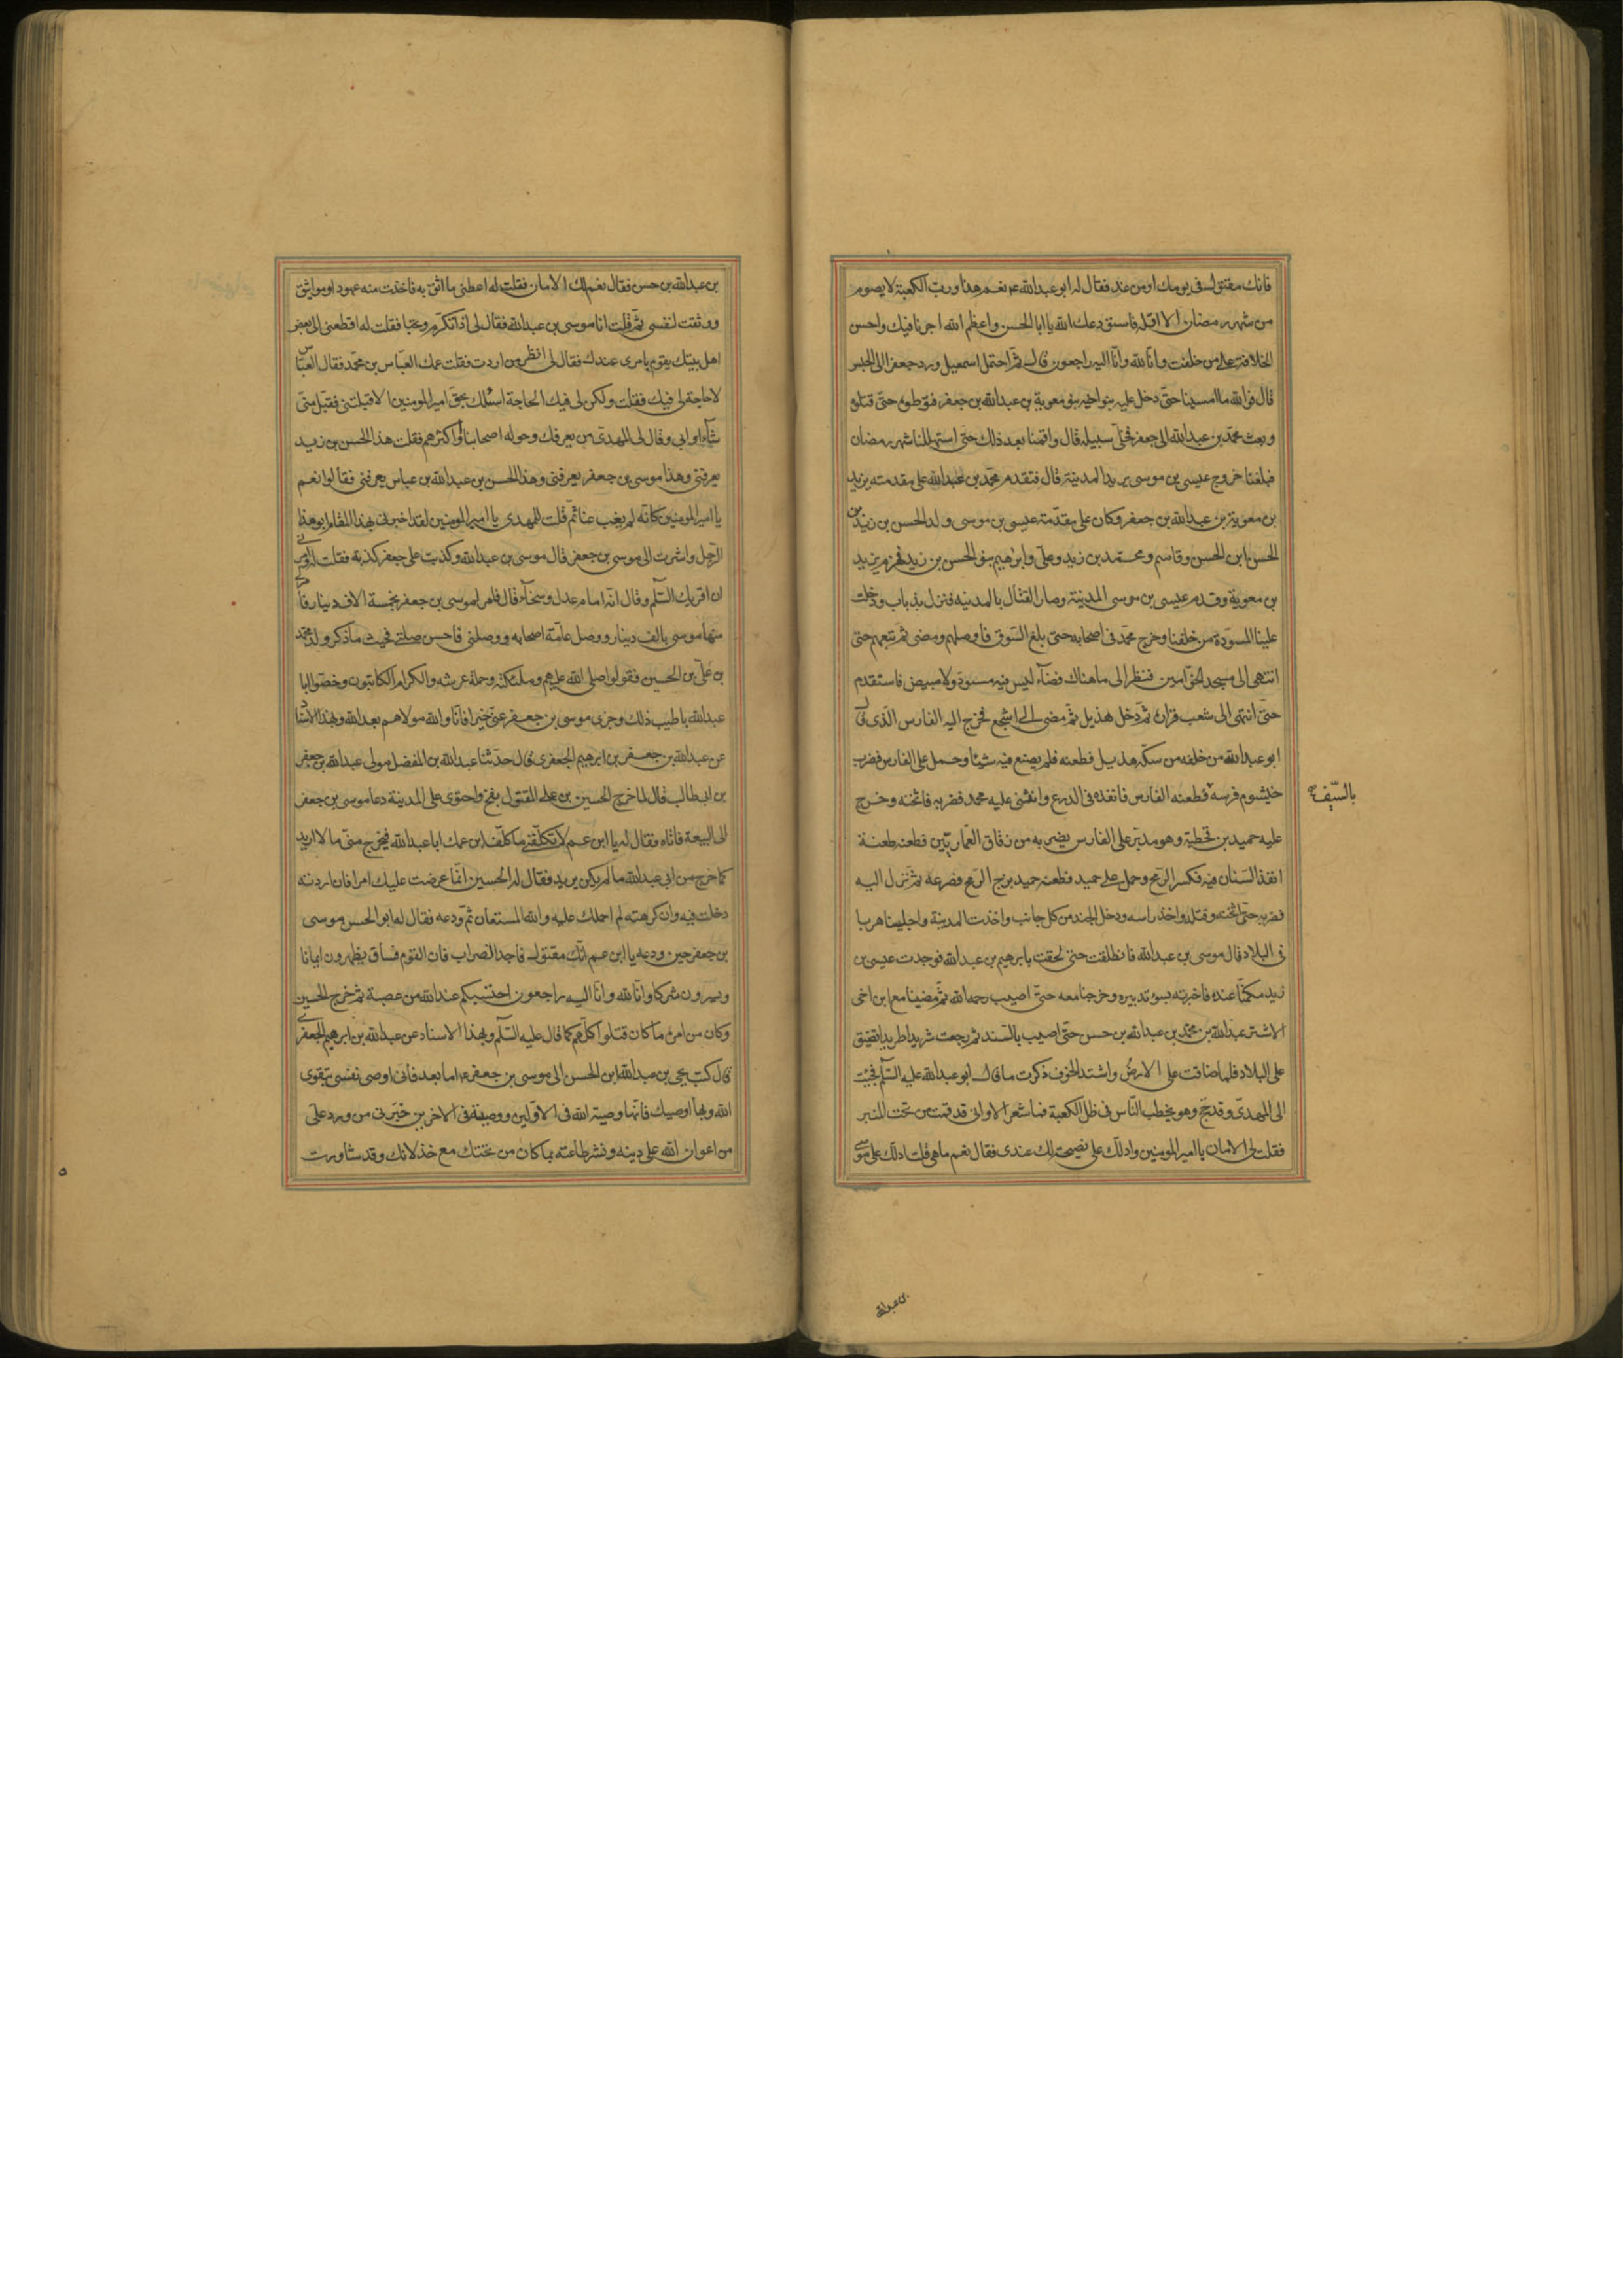 فانك مقتول فى يومك او من غد فقال له ابو عبدالله ع نعم هذا ورب الكعبة لا يصوم
من شهر رمضان الا اقله فاستودعك الله يا ابا الحسن واعظم الله اجرنا فيك واحسن
الخلافة على من خلفت وانا لله وانا اليه راجعون قال ثم احتمل اسمعيل ورد جعفر الى الحبس
قال فوالله ما امسينا حتى دخل عليه بنو اخيه بنو معوية بن عبدالله بن جعفر فتوطؤه حتى قتلوه
وبعث محمد بن عبدالله الى جعفر فخلى سبيله قال واقمنا بعد ذلك حتى استهللنا شهر رمضان
فبلغنا خروج عيسى بن موسى يريد المدينة قال فتقدم محمد بن عبدالله على مقدمته يزيد
بن معوية بن عبدالله بن جعفر وكان على مقدمة عيسى بن موسى ولد الحسن بن زيد بن
الحسن بن الحسن وقاسم ومحمد بن زيد وعلى وابرهيم بنو الحسن بن زيد فهزم يزيد
بن معوية وقدم عيسى بن موسى المدينة وصار القتال بالمدينه فنزل بذباب ودخلت
علينا المسودة من خلفنا وخرج محمد فى اصحابه حتى بلغ السوق فاوصلهم ومضى ثم تبعهم حتى
انتهى الى مسجد الخوامين فنظر الى ما هناك فضآء ليس فيه مسود ولا مبيض فاستقدم
حتى انتهى الى شعب فزاره ثم دخل هذيل ثم مضى الى اشجع فخرج اليه الفارس الذى قال
ابو عبدالله من خلفه من سكة هذيل فطعنه فلم يصنع فيه شيئا وحمل على الفارس فضرب
خيشوم فرسه فطعنه الفارس فانفذه فى الدرع وانثنى عليه محمد فضربه فاثخنه وخرج
بالسّيف
عليه حميد بن قحطبة وهو مدبر على الفارس يضربه من زقاق العماريين فطعنه طعنة
انفذ السنان فيه فكسر الرمح وحمل على حميد فطعنه حميد بزج الرمح فصرعه ثم نزل اليه
فضربه حتى اثخنه وقتله واخذ راسه ودخل الجند من كل جانب واخذت المدينة واجلينا هربا
فى البلاد قال موسى بن عبدالله فانطلقت حتى لحقت بابرهيم بن عبدالله فوجدت عيسى بن
زيد مكمنا عنده فاخبرته بسوء تدبيره وخرجنا معه حتى اصيب رحمه الله ثم مضينا مع ابن اخى
الاشتر عبدالله بن محمد بن عبدالله بن حسن حتى اصيب بالسند ثم رجعت شريدا طريدا تضيق
على البلاد فلما ضاقت على الارض واشتد الخوف ذكرت ما قال ابو عبدالله عليه السلم فجئت
الى المهدى وقد حج وهو يخطب الناس فى ظل الكعبة فما شعر الا وانى قد قمت من تحت المنبر
فقلت لى الامان يا امير المومنين وادلك على نصيحة لك عندى فقال نعم ما هى قلت ادلك على موسى
بن عبدالله
بن عبدالله بن حسن فقال نعم لك الامان فقلت له اعطنى ما اثق به فاخذت منه عهودا ومواثيق
ووثقت لنفسى ثم قلت انا موسى بن عبدالله فقال لى اذا تكرم وتحبا فقلت له اقطعنى الى بعض
اهل بيتك يقوم بامرى عندك فقال لى انظر من اردت فقلت عمك العباس بن محمد فقال العباس
لا حاجة لى فيك فقلت ولكن لى فيك الحاجة اسئلك بحق امير المومنين الا قبلتنى فقبل منى
شآء او ابى وقال لى المهدى من يعرفك وحوله اصحابنا او اكثرهم فقلت هذا الحسن بن زيد
يعرفنى وهذا موسى بن جعفر يعرفنى وهذا الحسن بن عبدالله بن عباس يعرفنى فقالوا نعم
يا امير المومنين كانه لم يغب عنا ثم قلت للمهدى يا امير المومنين لقد اخبرنى بهذا المقام ابو هذا
الرجل واشرت الى موسى بن جعفر قال موسى بن عبدالله وكذبت على جعفر كذبة فقلت له وامرنى
ان اقريك السلم وقال انه امام عدل وسخآء قال فامر لموسى بن جعفر بخمسة الاف دينار فامر لى
منها موسى بالف دينار ووصل عامة اصحابه ووصلنى فاحسن صلتى فحيث ما ذكر ولد محمد
بن على بن الحسين فقولوا صلى الله عليهم وملئكته وحملة عرشه والكرام الكاتبون وخصوا ابا
عبدالله باطيب ذلك وجزى موسى بن جعفر عنى خيرا فانا والله مولاهم بعد الله وبهذا الاسناد
عن عبدالله بن جعفر بن ابرهيم الجعفرى قال حدثنا عبدالله بن المفضل مولى عبدالله بن جعفر
بن ابيطالب قال لما خرج الحسين بن على المقتول بفخ واحتوى على المدينة دعا موسى بن جعفر
الى البيعة فاتاه فقال له يا ابن عم لا تكلفنى ما كلف ابن عمك ابا عبدالله فيخرج منى ما لا اريد
كما خرج من ابى عبدالله ما لم يكن يريد فقال له الحسين انما عرضت عليك امرا فان اردته
دخلت فيه وان كرهته لم احملك عليه والله المستعان ثم ودعه فقال له ابو الحسن موسى
بن جعفر حين ودعه يا ابن عم انك مقتول فاجد الضراب فان القوم فساق يظهرون ايمانا
ويسرون شركا وانا لله وانا اليه راجعون احتسبكم عند الله من عصبة ثم خرج الحسين
وكان من امره ما كان قتلوا كلهم كما قال عليه السلم وبهذا الاسناد عن عبدالله بن ابرهيم الجعفرى
قال كتب يحيى بن عبدالله بن الحسن الى موسى بن جعفر ع اما بعد فانى اوصى نفسى بتقوى
الله وبها اوصيك فانها وصية الله فى الاولين ووصيته فى الاخرين خبرنى من ورد على
من اعوان الله على دينه ونشر طاعته بما كان من تحننك مع خذلانك وقد شاورت